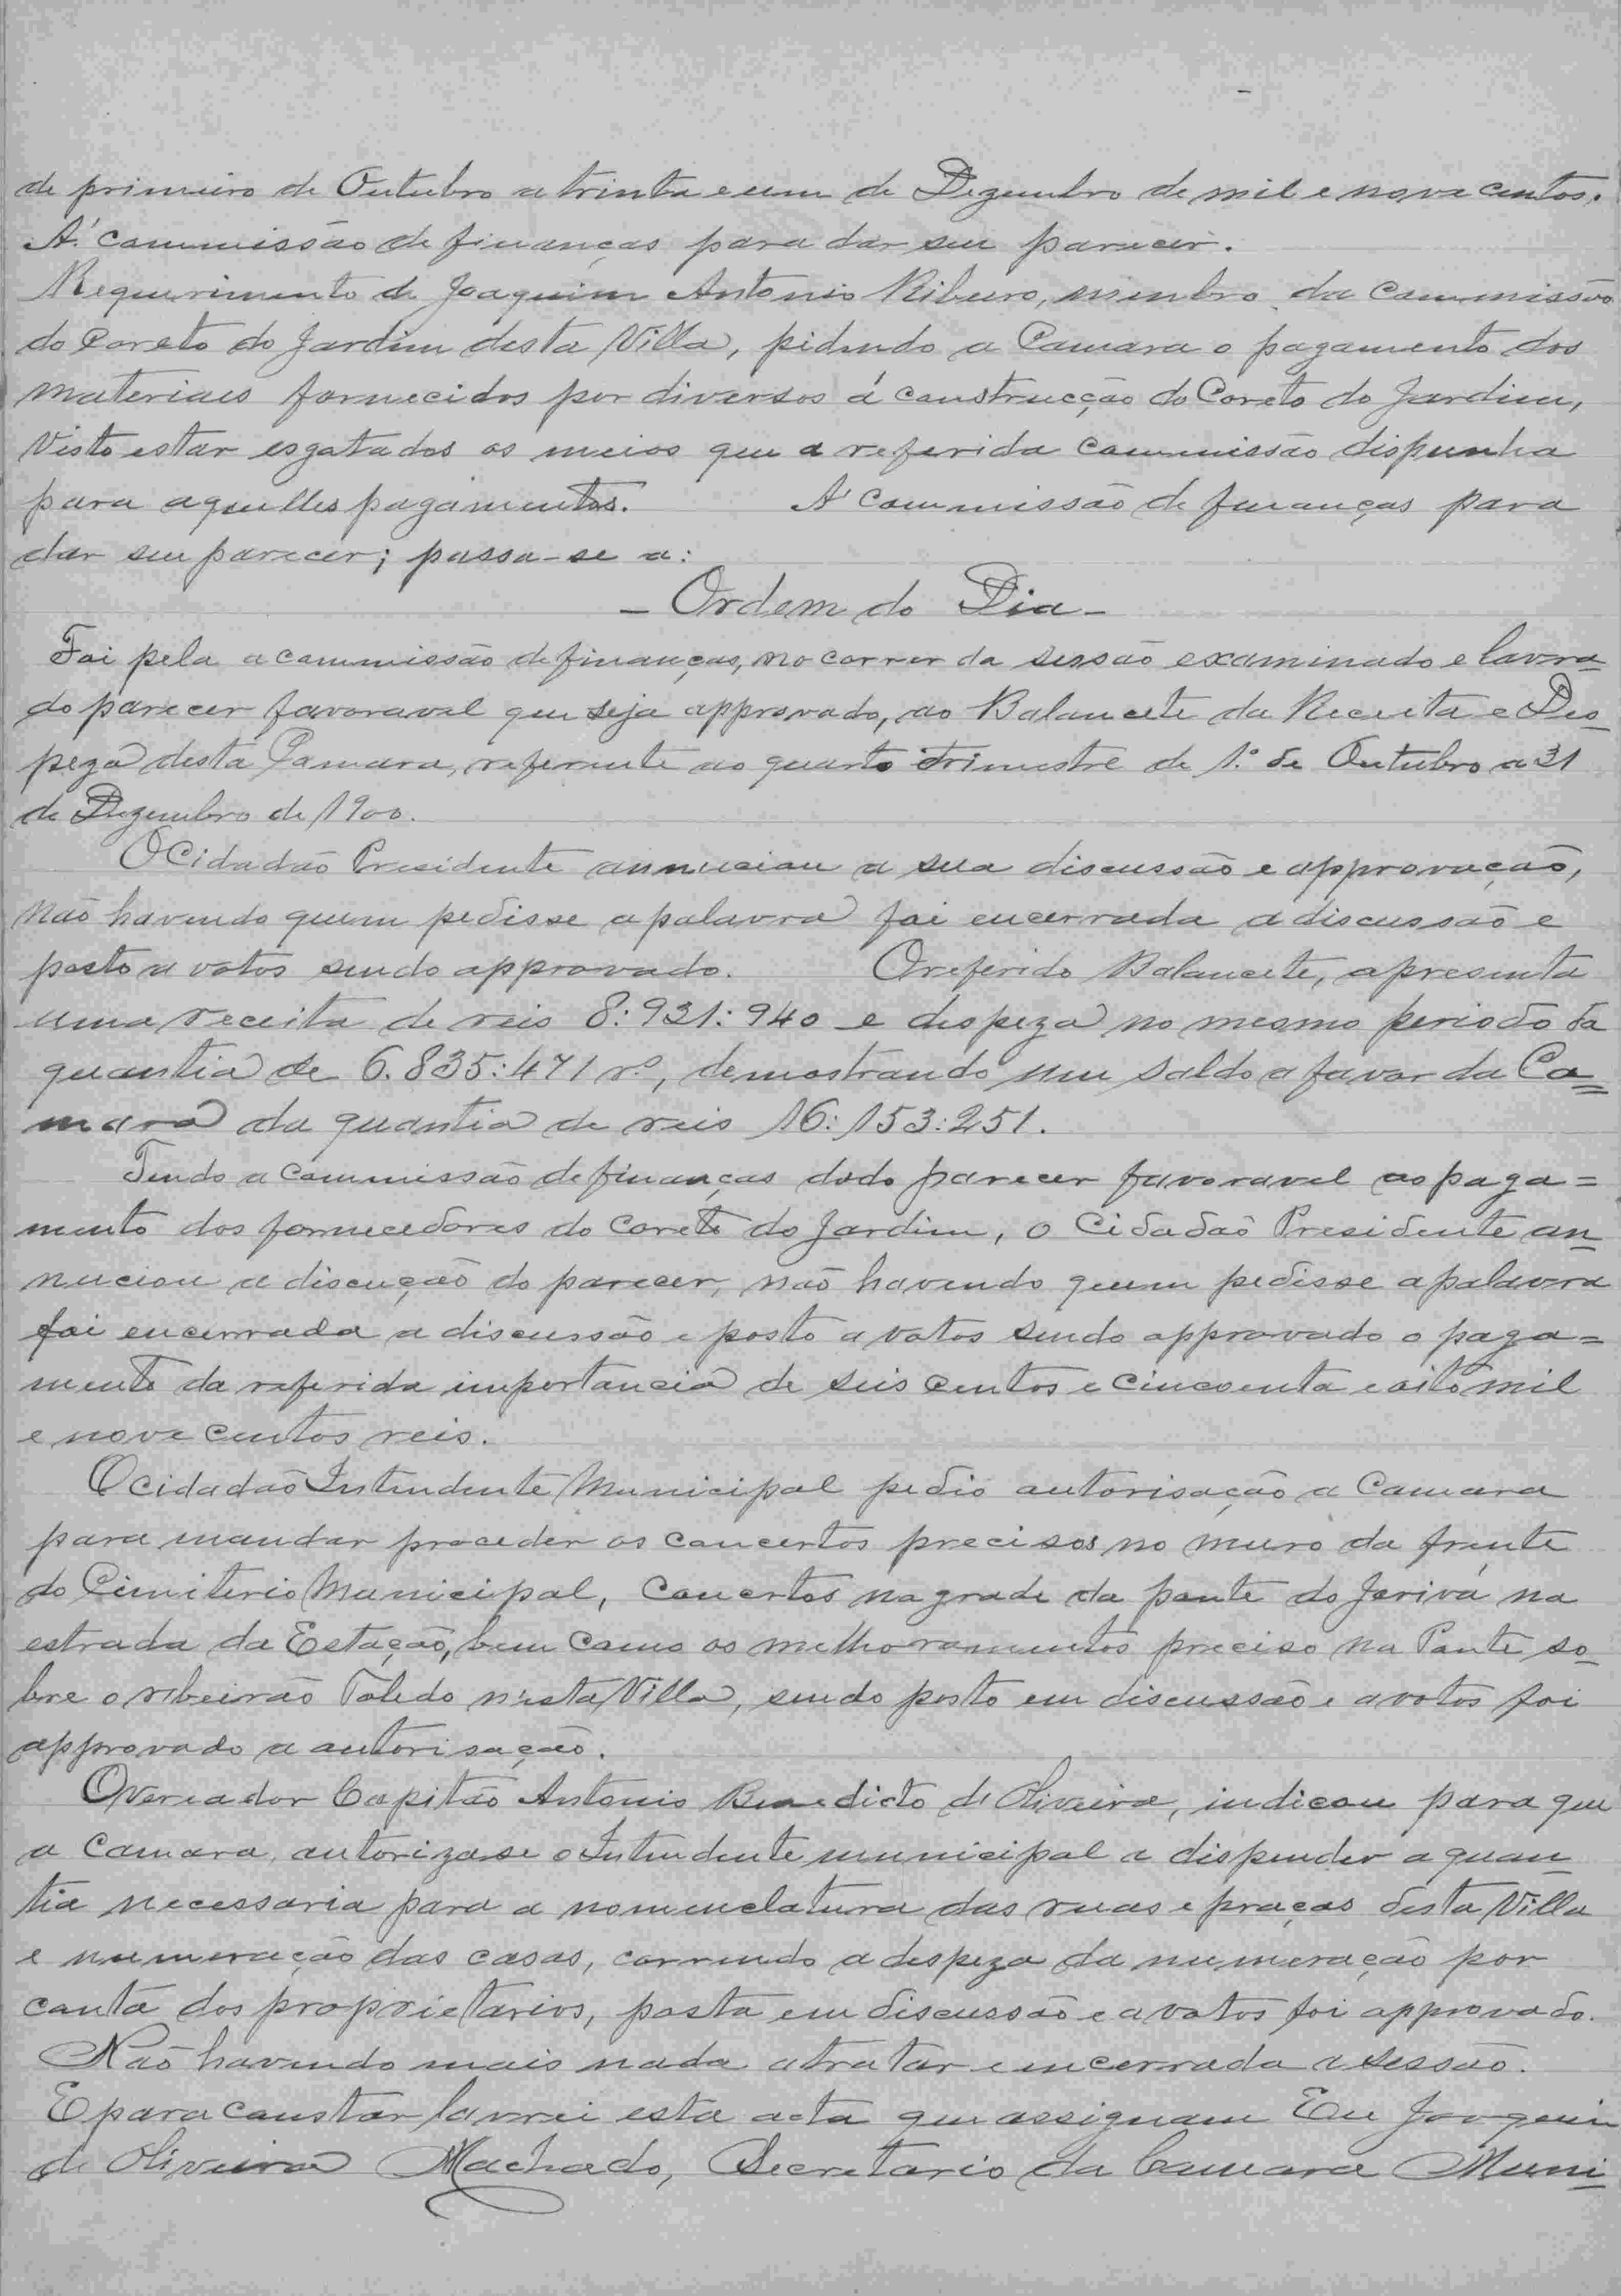 de primeiro de Outubro a trinta e um de Dezembro de mil e nove centos.
Á commissão de finanças para dar seu parecer.
Requerimento de Joaquim Antonio Ribeiro, membro da Commissão
do Coreto do Jardim desta Villa, pidindo a Camara o pagamento dos
materiaes fornecidos por diversos á construcção do Coreto do Jardim,
Visto estar esgatados os meios que a referida Commissão dispunha
para aquelles pagamentos. Á Commissão de finanças para
dar seu parecer; passa-se a:
- Ordem do Dia -
Foi pela a commissão de finanças, no correr da sessão examinado e lavra=
do parecer favoravel que seja approvado, ao Balancete da Receita e Des=
peza desta Camara, referente ao quarto trimestre de 1º de Outubro a 31
de Dezembro de 1900.
O Cidadão Presidente annuciou a sua discussão e approvação,
não havendo quem pedisse a palavra foi encerrada a discussão e
posto a votos sendo approvado. O referido Balancete, apresenta
uma receita de reis 8:931:940 e despeza no mesmo periodo da
quantia de 6.835:471 rs, demostrando um saldo a favor da Ca=
mara da quantia de reis 16:153:251.
Tendo a Commissão de finanças dado parecer favoravel ao paga=
mento dos fornecedores do Coreto do Jardim, o Cidadão Presidente an=
nuciou a discução do parecer, não havendo quem pedisse a palavra
foi encerrada a discussão e posto a votos sendo approvado o paga=
mento da referida importancia de seis centos e cincoenta e oito mil
e nove centos reis.
O cidadão Intendente Municipal pedio autorisação a Camara
para mandar proceder os concertos precisos no muro da frente
do Cimiterio Municipal, Concertos na grade da ponte do Jerivá na
estrada da Estação, bem como os melhoramentos preciso na Ponte so=
bre o ribeirão Toledo nesta Villa, sendo posto em discussão e a votos foi
approvado a autorisação.
O Vereador Capitão Antonio Benedicto de Oliveira, indicou para que
a Camara, autorizase o Intendente municipal a dispender a quan=
tia necessaria para a nomenclatura das ruas e praças desta Villa
e numeração das casas, correndo a despeza da numeração por
conta dos proprietarios, posta em discussão e a votos foi approvado.
Não havendo mais nada a tratar e encerrada a sessão.
E para constar lavrei esta acta que assignam Eu Joaquim
de Oliveira Machado, Secretario da Camara Muni=